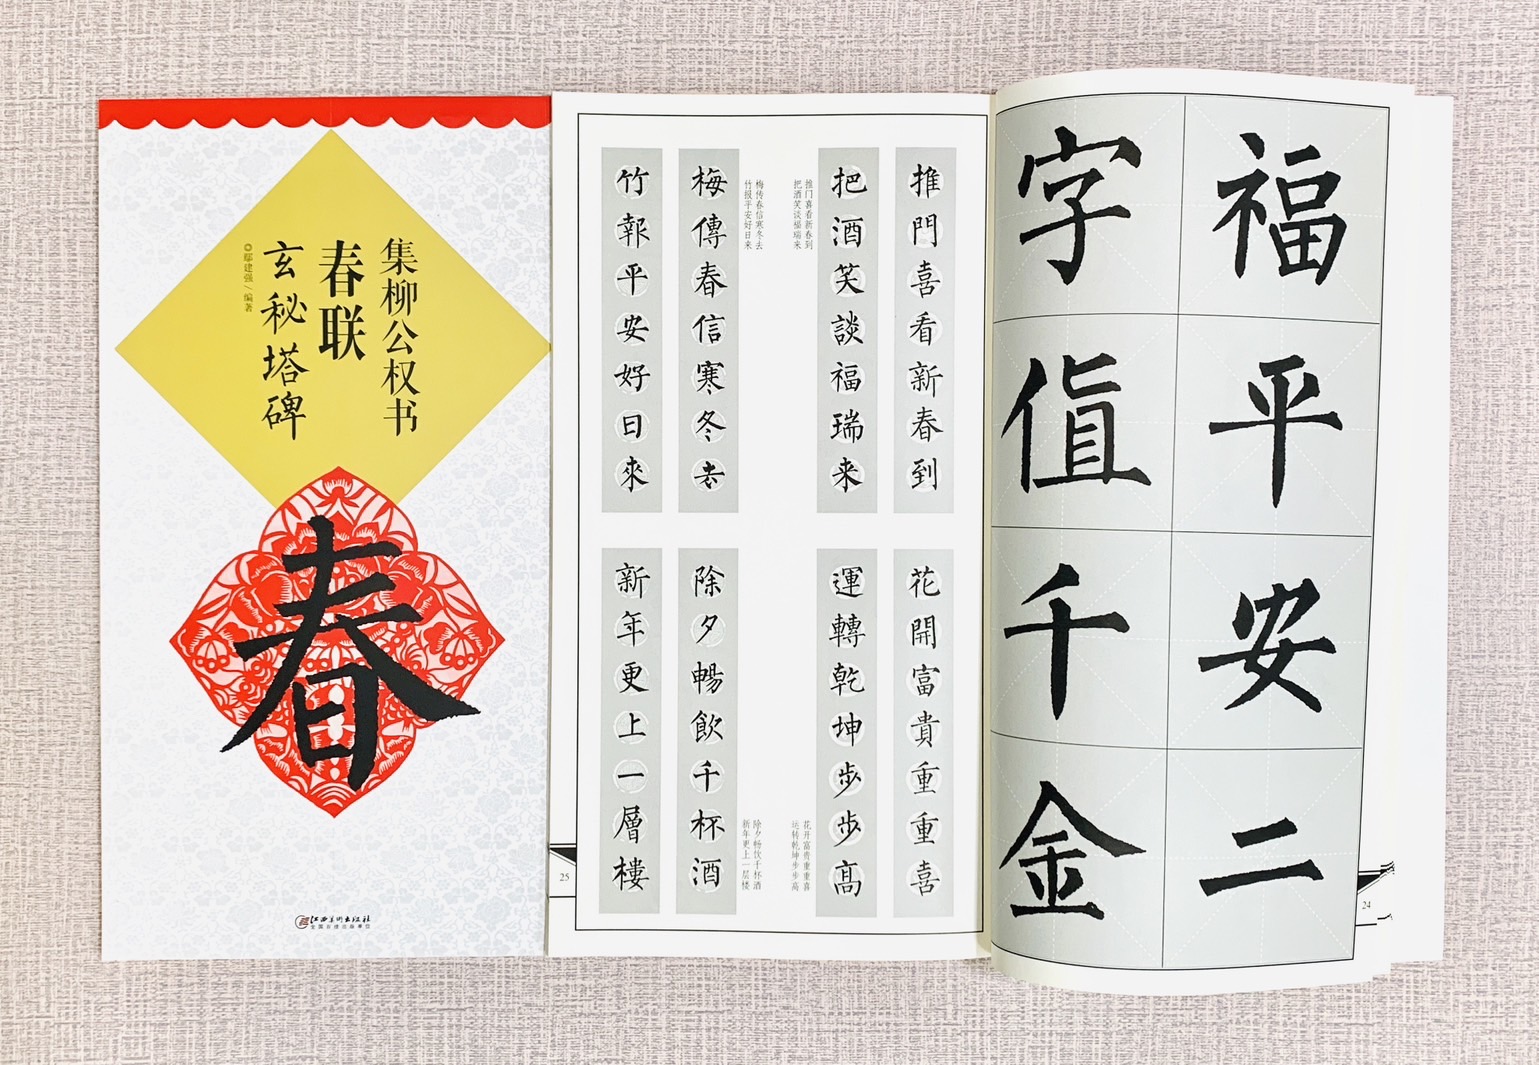 集柳公权书
春联
玄秘塔碑
◎鄢建强／编著
春
江西美术出版社
全国百佳出版单位
推門喜看新春到
把酒笑談福瑞来
推门喜看新春到
把酒笑谈福瑞来
梅傳春信寒冬去
竹報平安好日來
梅传春信寒冬去
竹报平安好日来
花開富貴重重喜
運轉乾坤步步高
花开富贵重重喜
运转乾坤步步高
除夕暢飲千杯酒
新年更上一層樓
除夕畅饮千杯酒
新年更上一层楼
25
福平安二
字值千金
24